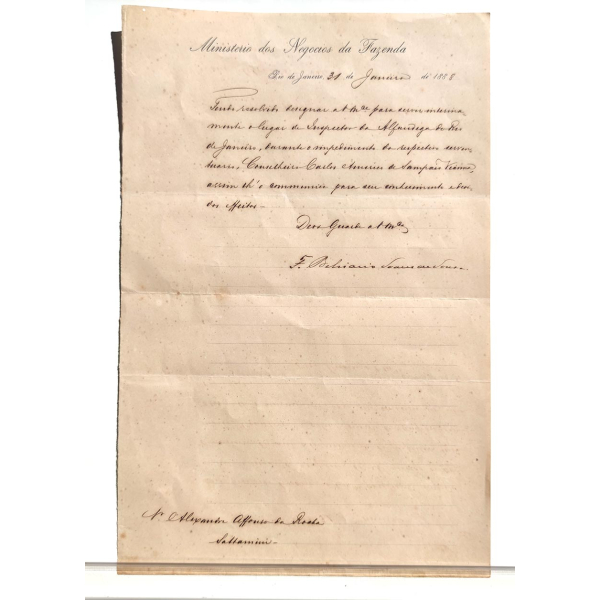 Ministerio dos Negocios da Fazenda
Rio de Janeiro, 31 de Janeiro de 1888
Tendo resolvido designar a V. Mce para servir interina-
mente o lugar de Inspector da Alfandega do Rio
de Janeiro, durante o impedimento do respectivo serven-
tuario, Conselheiro Carlos Americo de Sampaio Vianna,
assim lh'o communico para seu conhecimento e devi-
dos effeitos.
Deos Guarde a V. Mce
F. Belisario Soares de Souza
Sr. Alexandre Affonso da Rocha
Sattamini